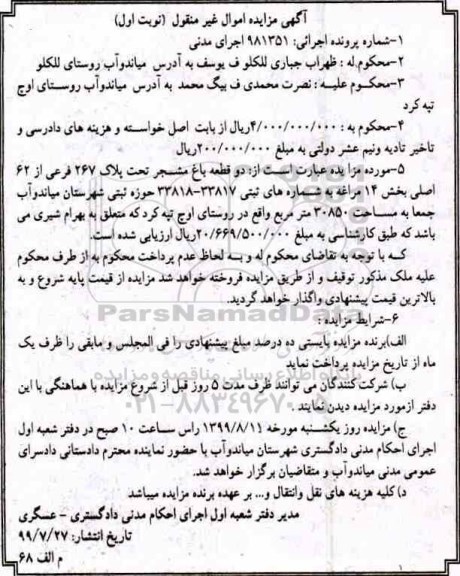 آگهی مزایده اموال غیر منقول (نوبت اول)
۱-شماره پرونده اجرائی: ۹۸۱۳۵۱ اجرای مدنی
۲-محکوم له : ظهراب جباری للکلو ف یوسف به آدرس میاندوآب روستای للکلو
۳-محکـوم علیـه : نصرت محمدی ف بیگ محمد به آدرس میاندوآب روستای اوچ
تپه کرد
۴-محکوم به : ۴/۰۰۰/۰۰۰/۰۰۰ریال از بابت اصل خواسته و هزینه های دادرسی و
تاخیر تادیه ونیم عشر دولتی به مبلغ ۲۰۰/۰۰۰/۰۰۰ریال
۵-مورده مزایده عبارت است از: دو قطعه باغ مشجر تحت پلاک ۲۶۷ فرعی از ۶۲
اصلی بخش ۱۴مراغه به شماره های ثبتی ۳۳۸۱۷-۳۳۸۱۸ حوزه ثبتی شهرستان میاندوآب
جمعا به مساحت ۳۰۸۵۰ متر مربع واقع در روستای اوچ تپه کرد که متعلق به بهرام شیری می
باشد که طبق کارشناسی به مبلغ ۲۰/۶۶۹/۵۰۰/۰۰۰ریال ارزیابی شده است.
کـه با توجه به تقاضای محکوم له و به لحاظ عدم پرداخت محکوم به از طرف محکوم
علیه ملک مذکور توقیف و از طریق مزایده فروخته خواهد شد مزایده از قیمت پایه شروع و به
بالاترین قیمت پیشنهادی واگذار خواهد گردید.
۶-شرایط مزایده :
الف)برنده مزایده بایستی ده درصد مبلغ پیشنهادی را فی المجلس و مابقی را ظرف یک
ماه از تاریخ مزایده پرداخت نماید
ب) شرکت کنندگان می توانند ظرف مدت ۵ روز قبل از شروع مزایده با هماهنگی با این
دفتر ازمورد مزایده دیدن نمایند .
ج) مزایده روز یکشنبه مورخه ۱۳۹۹/۸/۱۱ راس ساعت ۱۰ صبح در دفتر شعبه اول
اجرای احکام مدنی دادگستری شهرستان میاندوآب با حضور نماینده محترم دادستانی دادسرای
عمومی مدنی میاندوآب و متقاضیان برگزار خواهد شد.
د) کلیه هزینه های نقل وانتقال و... بر عهده برنده مزایده میباشد
مدیر دفتر شعبه اول اجرای احکام مدنی دادگستری - عسگری
تاریخ انتشار: ۹۹/۷/۲۷
م الف ۶۸
ParsNamadData
پایگاه اطلاع رسانی مناقصه و مزایده
۰۲۱-۸۸۳۴۹۶۷۰-۵